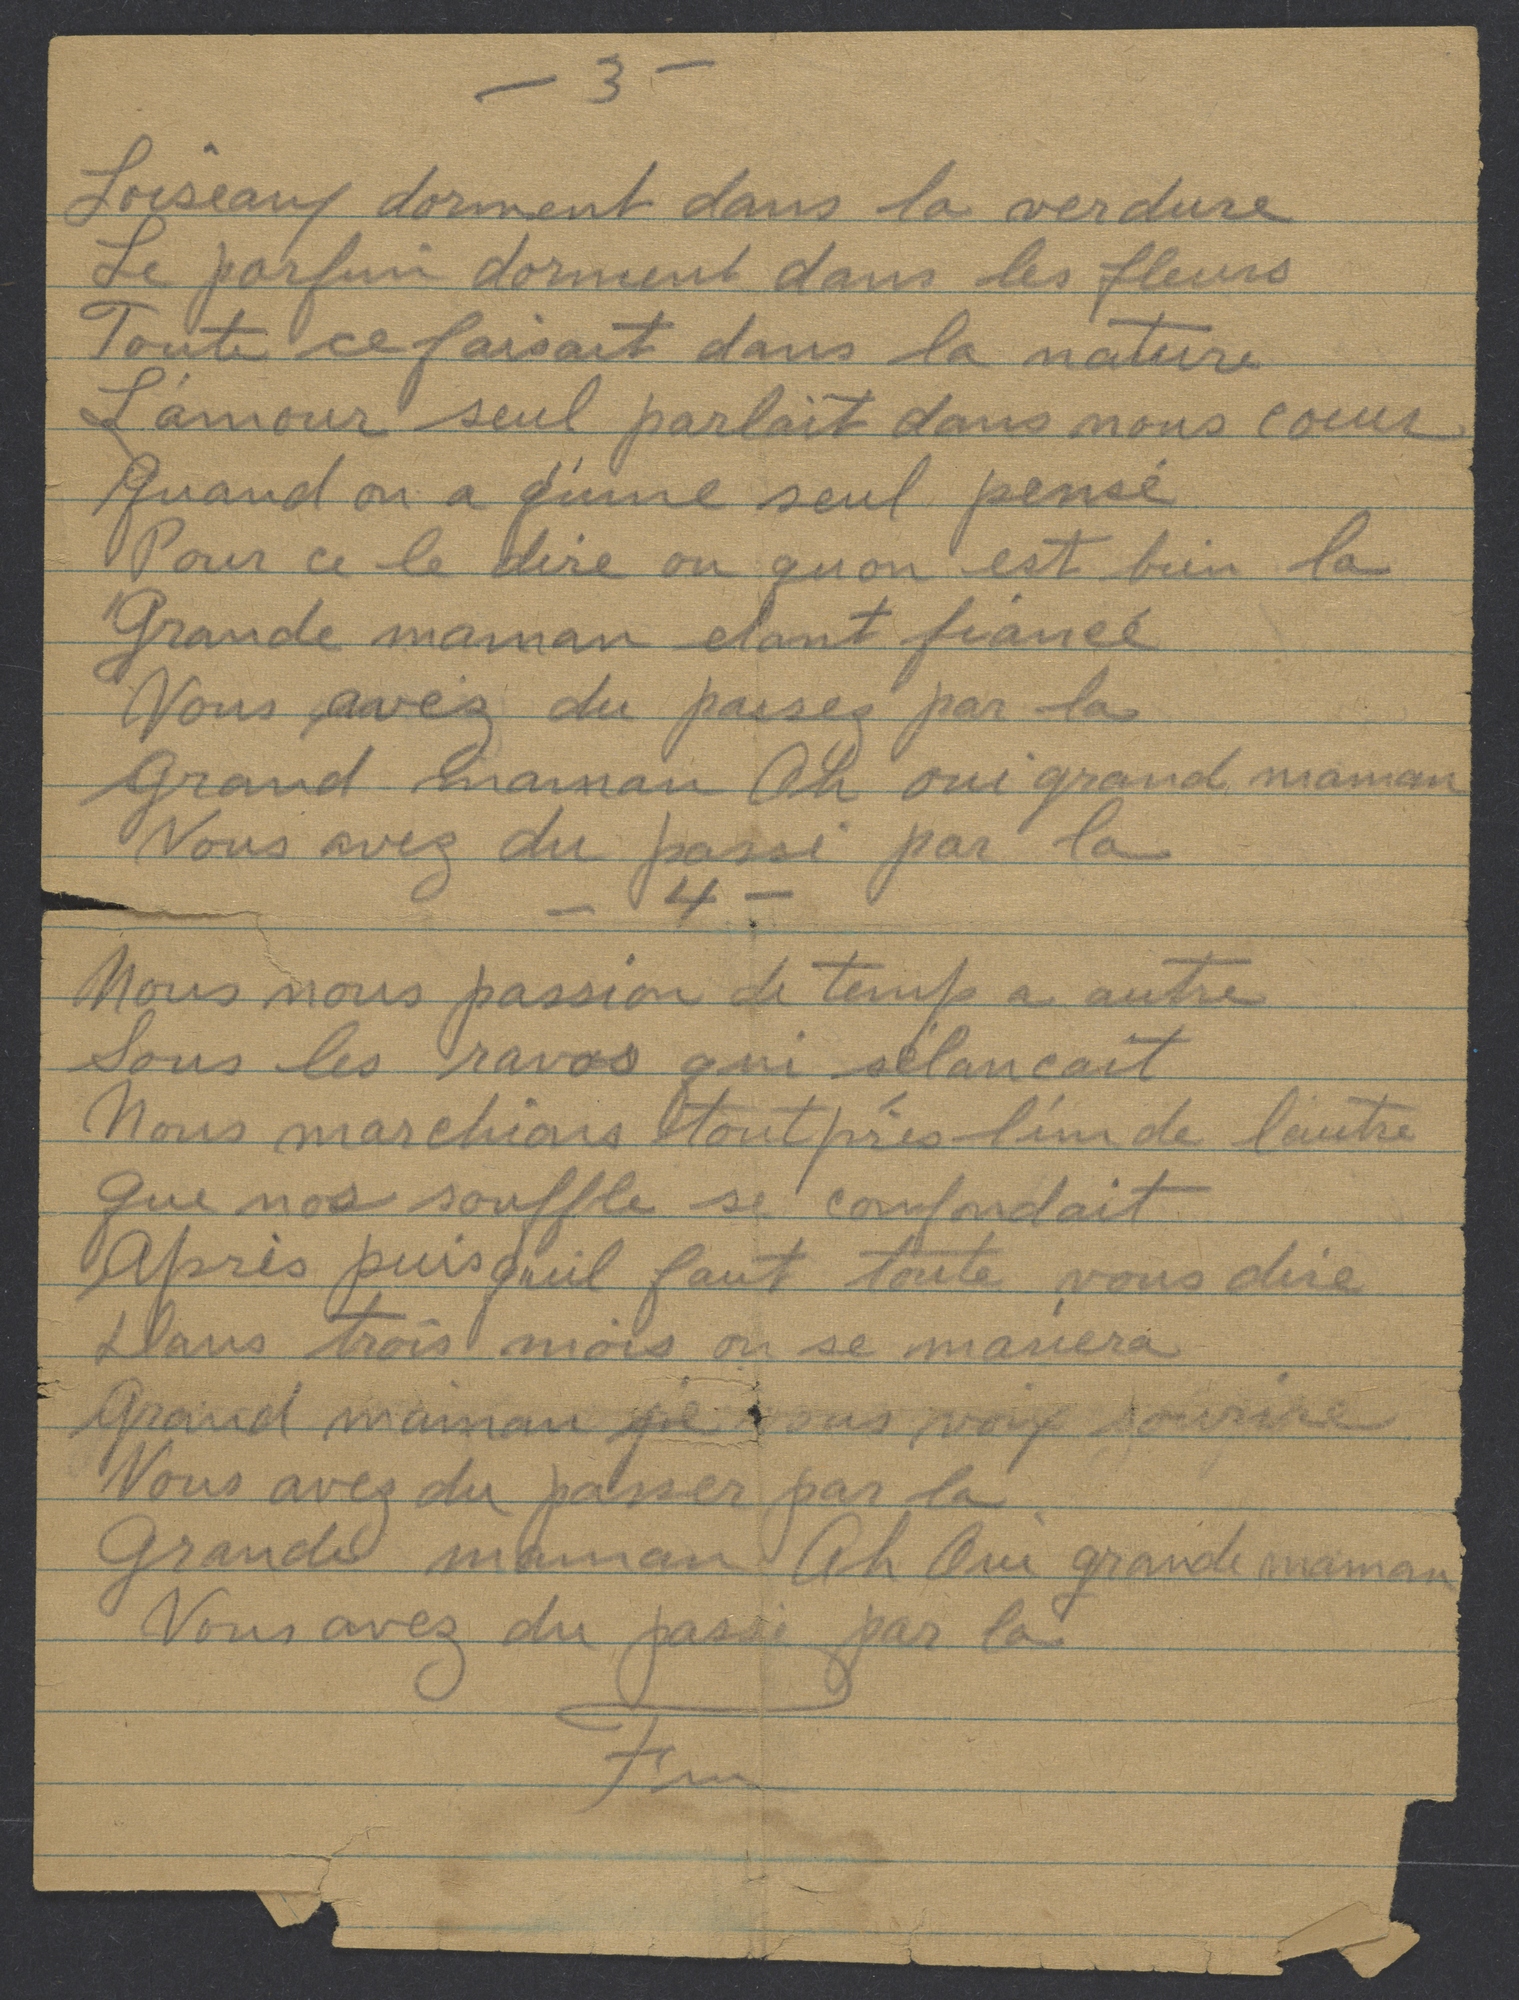 — 3 —
Loiseaux dorment dans la verdure
Le parfun dorment dans les fleurs
Toute ce faisait dans la nature
L'amour seul parlait dans nous coeur
Quand on a q'une seul pensé
Pour ce le dire ou quon est bien la
Grande maman etant fiancé
Vous avez du passez par la
Grand maman Oh oui grand maman
Vous avez du passé par la
— 4 —
Nous nous passion de temp a autre
Sous les qui sélancait
Nous marchions tout près l'un de l'autre
Que nos souffle se confondait
Après puisqu'il faut toute vous dire
Dans trois mois on se mariera
Grand maman je vous voix sourire
Vous avez du passer par la
Grande maman Oh Oui grande maman
Vous avez du passé par la
Fin